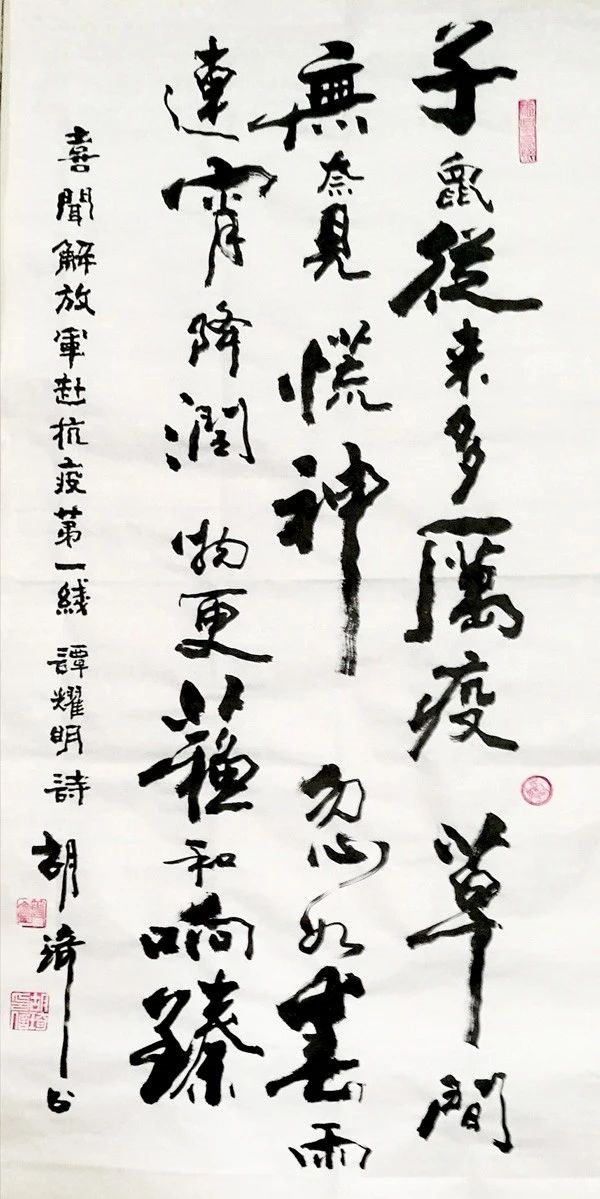 子鼠從来多厲疫 草間
無奈見慌神 忽如春雨
連宵降潤物更蘇和响臻
喜聞解放軍赴抗疫第一綫 譚耀明詩 胡 书